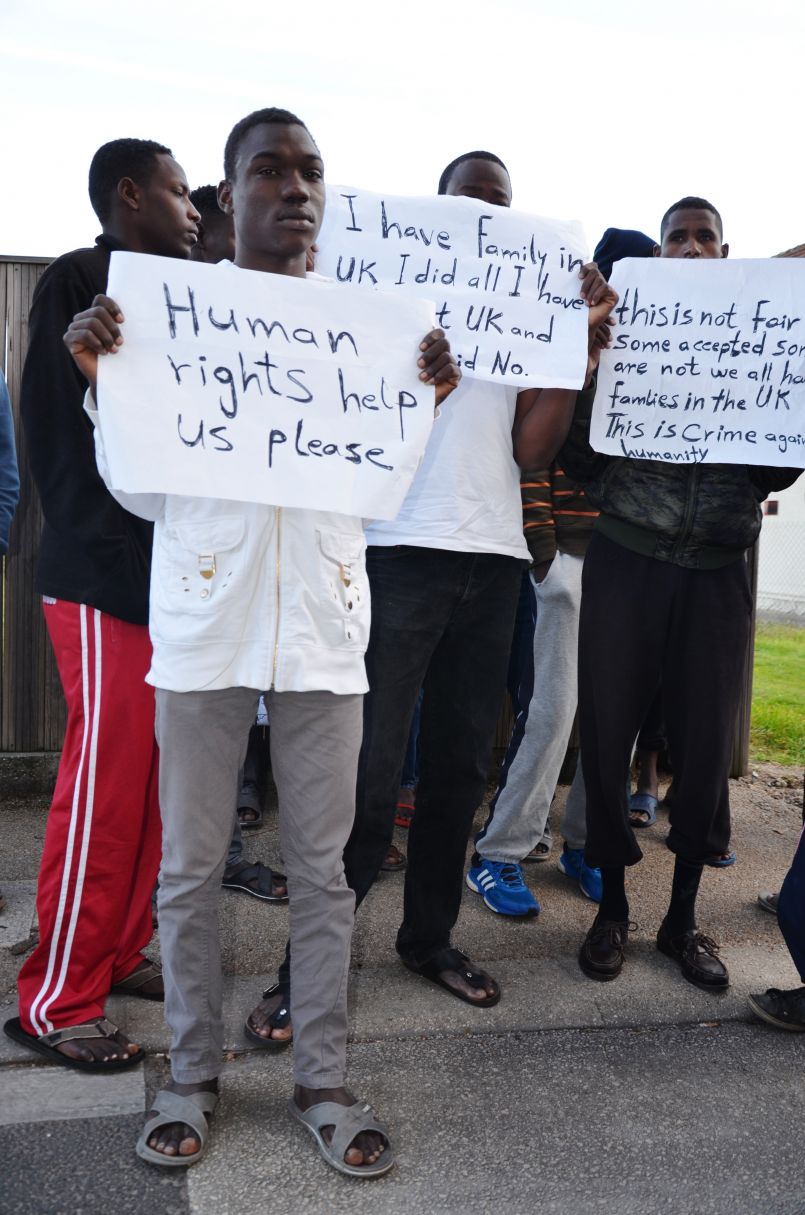 Human
rights help
us please
I have family in
UK I did all I have
t UK and
id No.
this is not fair
some accepted som
are not we all ha
families in the UK
This is Crime again
humanity